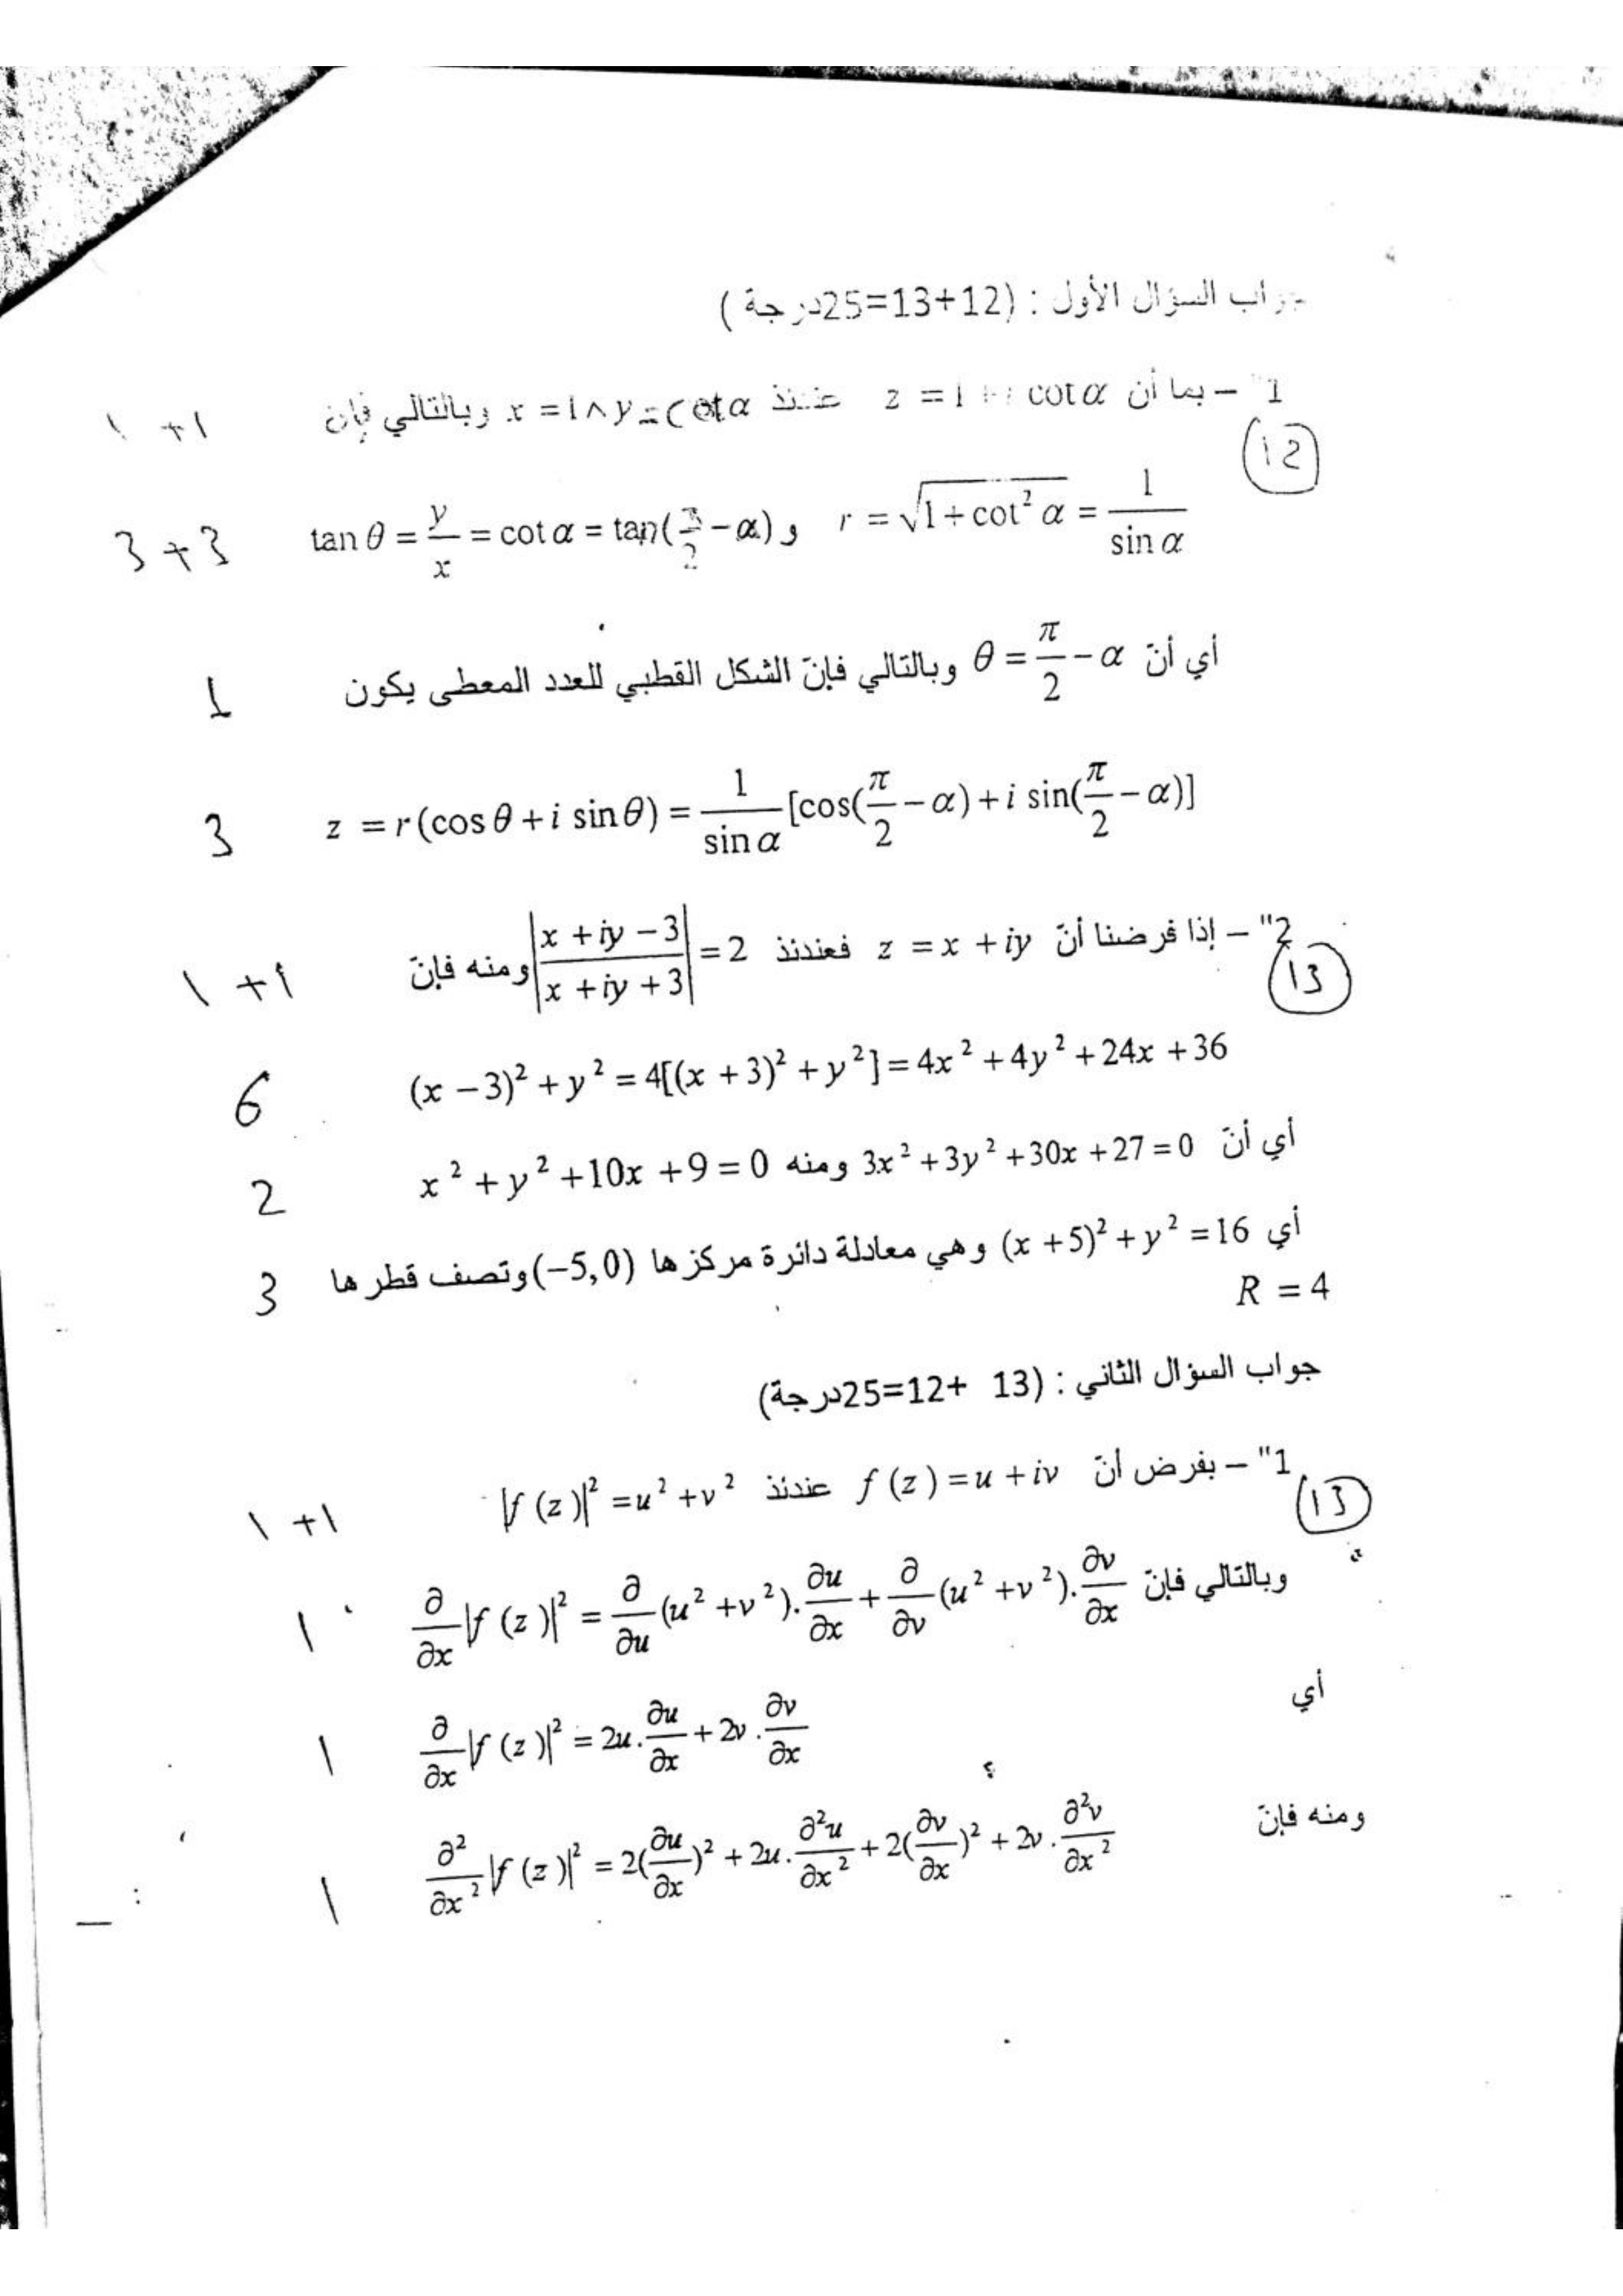 جواب السؤال الأول : (12+13=25درجة )
1" – بما أن z = 1 + i cot α عندئذ x = 1 ∧ y = cot α وبالتالي فإن 1 + 1
(12)
r = √(1 + cot² α) = 1/sin α و tan θ = y/x = cot α = tan(π/2 − α) 3 + 3
أي أنّ θ = π/2 − α وبالتالي فإنّ الشكل القطبي للعدد المعطى يكون 1
z = r(cos θ + i sin θ) = 1/sin α [cos(π/2 − α) + i sin(π/2 − α)] 3
2" – إذا فرضنا أنّ z = x + iy فعندئذ |(x + iy − 3)/(x + iy + 3)| = 2 ومنه فإنّ 1 + 1
(13)
(x − 3)² + y² = 4[(x + 3)² + y²] = 4x² + 4y² + 24x + 36 6
أي أنّ 3x² + 3y² + 30x + 27 = 0 ومنه x² + y² + 10x + 9 = 0 2
أي (x + 5)² + y² = 16 وهي معادلة دائرة مركزها (−5,0) وتصف قطرها 3
R = 4
جواب السؤال الثاني : (13 +12=25درجة)
1" – بفرض أنّ f(z) = u + iv عندئذ |f(z)|² = u² + v² 1 + 1
(13)
وبالتالي فإنّ ∂/∂x |f(z)|² = ∂/∂u (u² + v²).∂u/∂x + ∂/∂v (u² + v²).∂v/∂x 1
أي ∂/∂x |f(z)|² = 2u.∂u/∂x + 2v.∂v/∂x 1
ومنه فإنّ ∂²/∂x² |f(z)|² = 2(∂u/∂x)² + 2u.∂²u/∂x² + 2(∂v/∂x)² + 2v.∂²v/∂x² 1